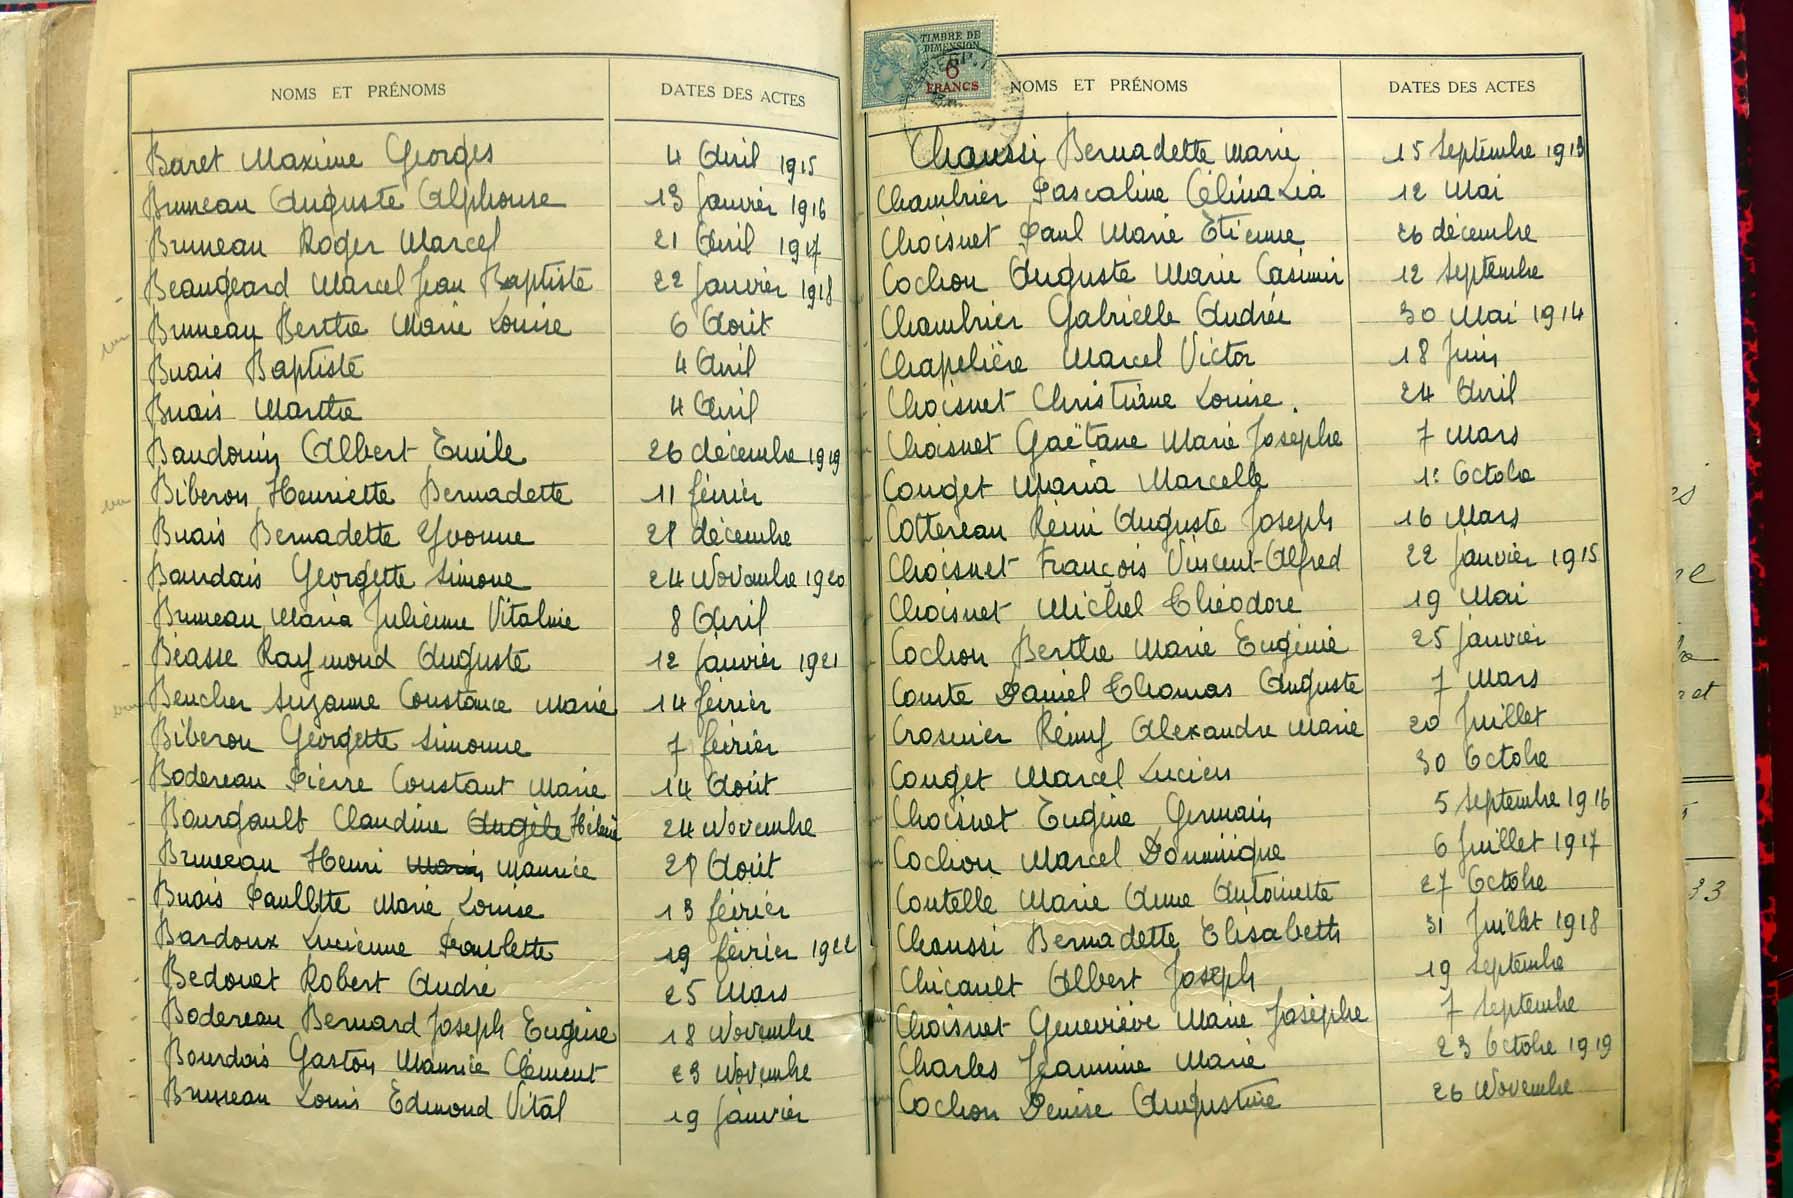 NOMS ET PRÉNOMS DATES DES ACTES
Baret Maxime Georges 4 Avril 1915
Bruneau Auguste Alphonse 13 Janvier 1916
Bruneau Roger Marcel 21 Avril 1917
Beaugeard Marcel Jean Baptiste 22 Janvier 1918
Bruneau Berthe Marie Louise 6 Août
Buais Baptiste 4 Avril
Buais Marthe 4 Avril
Baudouin Albert Emile 26 décembre 1919
Biberon Henriette Bernadette 11 février
Buais Bernadette Yvonne 28 décembre
Baudais Georgette Simone 24 Novembre 1920
Bruneau Maria Julienne Vitaline 8 Avril
Béasse Raymond Auguste 12 Janvier 1921
Beucher Suzanne Constance Marie 14 février
Biberon Georgette Simonne 7 février
Bodereau Pierre Constant Marie 14 Août
Bourgault Claudine Angèle Hélène 24 Novembre
Bruneau Henri Marie Maurice 28 Août
Buais Paullette Marie Louise 13 février
Bardoux Lucienne Paulette 19 février 1922
Bedouet Robert André 25 Mars
Bodereau Bernard Joseph Eugène 18 Novembre
Bourdais Gaston Maurice Clément 23 Novembre
Bruneau Louis Edmond Vital 19 Janvier
TIMBRE DE
DIMENSION
6
FRANCS
NOMS ET PRÉNOMS DATES DES ACTES
Chaussi Bernadette Marie 15 Septembre 1913
Chambrier Pascaline Célina Lia 12 Mai
Choisnet Paul Marie Etienne 26 décembre
Cochon Auguste Marie Casimir 12 Septembre
Chambrier Gabrielle Andrée 30 Mai 1914
Chapelière Marcel Victor 18 Juin
Choisnet Christiane Louise. 24 Avril
Choisnet Gaëtane Marie Josephe 7 Mars
Couget Maria Marcelle 1: Octobre
Cottereau Rémi Auguste Joseph 16 Mars
Choisnet François Vincent-Alfred 22 Janvier 1915
Choisnet Michel Théodore 19 Mai
Cochon Berthe Marie Eugénie 25 Janvier
Comte Daniel Thomas Auguste 7 Mars
Crosnier Rémy Alexandre Marie 20 Juillet
Couget Marcel Lucien 30 Octobre
Choisnet Eugène Germain 5 Septembre 1916
Cochon Marcel Dominique 6 Juillet 1917
Coutelle Marie Anne Antoinette 27 Octobre
Chaussi Bernadette Elisabeth 31 Juillet 1918
Chicault Albert Joseph 19 Septembre
Choisnet Geneviève Marie Josèphe 7 Septembre
Charles Jeannine Marie 23 Octobre 1919
Cochon Denise Augustine 26 Novembre
33